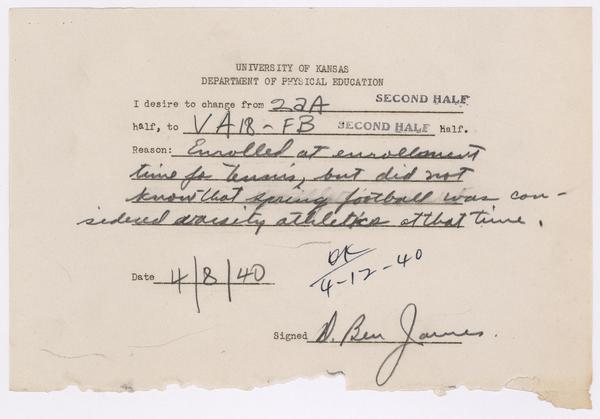 UNIVERSITY OF KANSAS
DEPARTMENT OF PHYSICAL EDUCATION
I desire to change from 22A SECOND HALF
half, to VA18-FB SECOND HALF Half.
Reason: Enrolled at enrollment
time for tennis, but did not
know that spring football was con-
sidered varsity athletics at that time.
Date 4/8/40
OK
4-12-40
Signed D. Ben James.